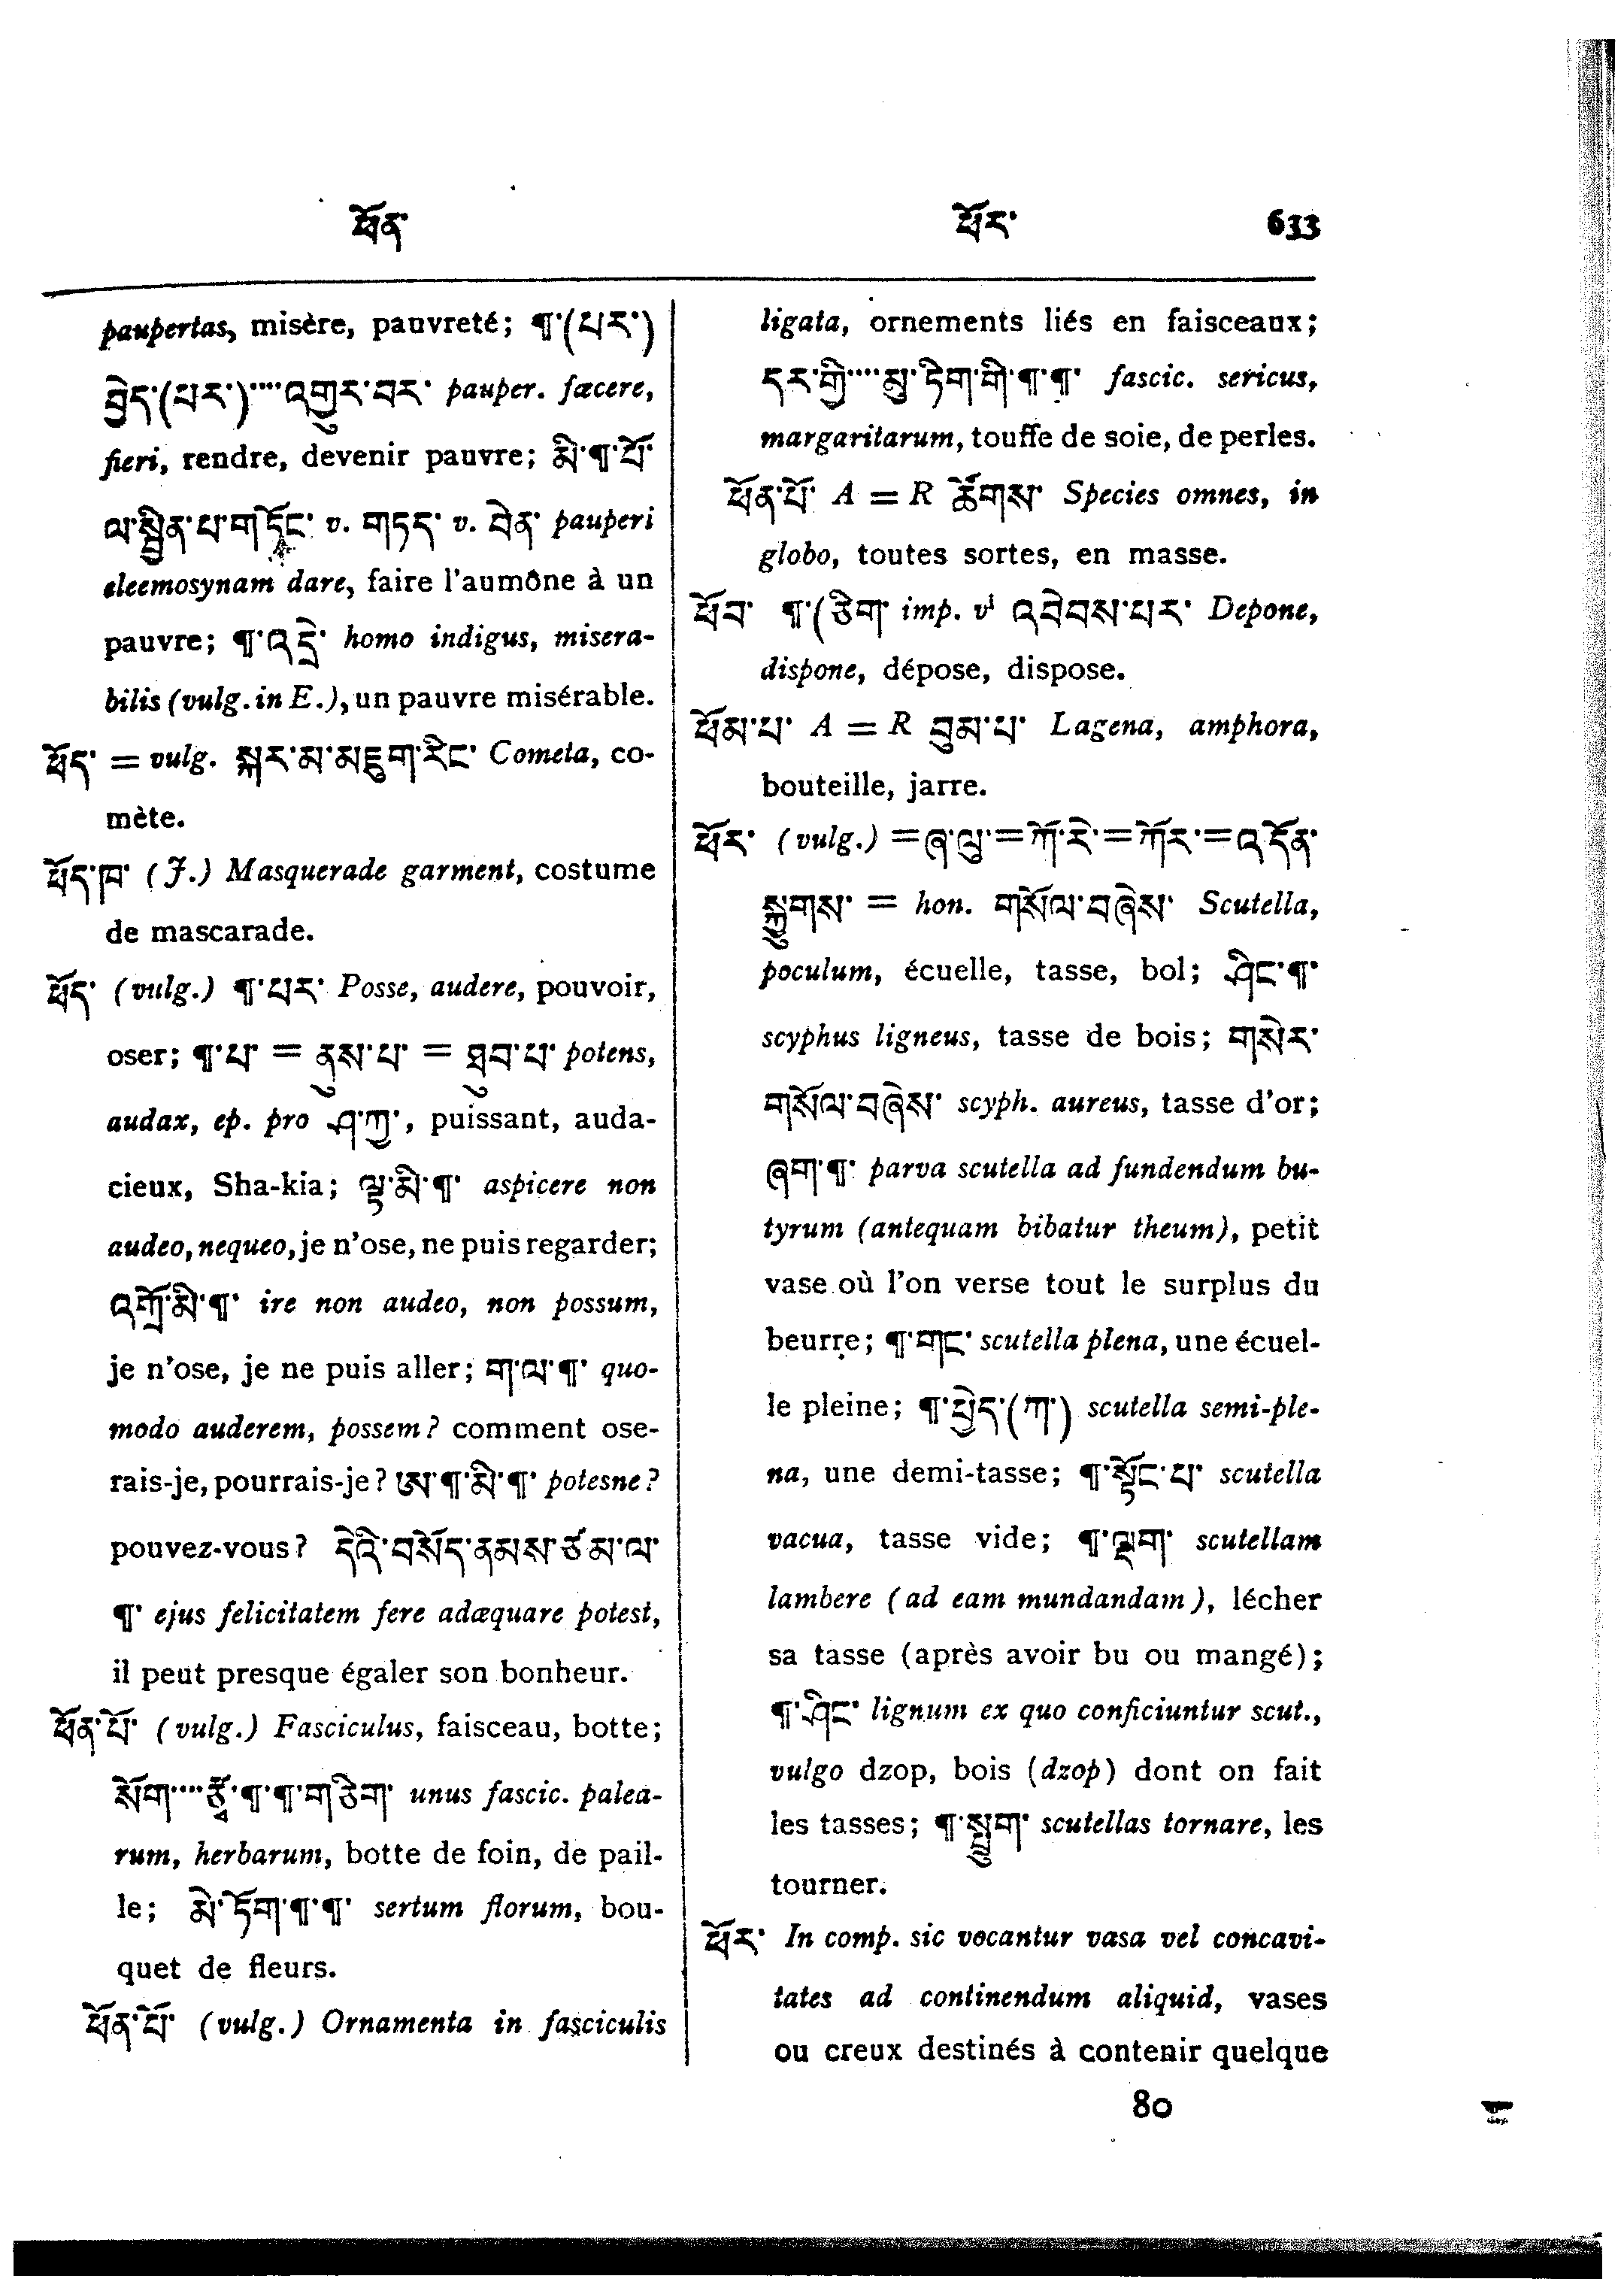 ཕོན་
ཕོར་ 633
paupertas, misère, pauvreté; ¶་(པར་)
བྱེད་(པར་)····འགྱུར་བར་ pauper. facere,
fieri, rendre, devenir pauvre; མི་¶་པོ་
ལ་སྦྱིན་པ་གཏོང་ v. གཏད་ v. བེན་ pauperi
eleemosynam dare, faire l'aumône à un
pauvre; ¶་འདྲེ་ homo indigus, misera-
bilis (vulg. in E.), un pauvre misérable.
ཕོད་ = vulg. སྐར་མ་མཇུག་རིང་ Cometa, co-
mète.
ཕོད་ཁ་ (J.) Masquerade garment, costume
de mascarade.
ཕོད་ (vulg.) ¶་པར་ Posse, audere, pouvoir,
oser; ¶་པ་ = ནུས་པ་ = ཐུབ་པ་ potens,
audax, ep. pro ཤ་ཀྱ་, puissant, auda-
cieux, Sha-kia; ལྟ་མི་¶་ aspicere non
audeo, nequeo, je n'ose, ne puis regarder;
འགྲོ་མི་¶་ ire non audeo, non possum,
je n'ose, je ne puis aller; ག་ལ་¶་ quo-
modo auderem, possem? comment ose-
rais-je, pourrais-je? ཨ་¶་མི་¶་ potesne?
pouvez-vous? དེའི་བསོད་ནམས་ཙམ་ལ་
¶་ ejus felicitatem fere adæquare potest,
il peut presque égaler son bonheur.
ཕོན་པོ་ (vulg.) Fasciculus, faisceau, botte;
སོག····རྩྭ་¶་¶་གཅིག་ unus fascic. palea-
rum, herbarum, botte de foin, de pail-
le; མེ་ཏོག་¶་¶་ sertum florum, bou-
quet de fleurs.
ཕོན་པོ་ (vulg.) Ornamenta in fasciculis
ligata, ornements liés en faisceaux;
དར་གྱི····མུ་ཏིག་གི་¶་¶་ fascic. sericus,
margaritarum, touffe de soie, de perles.
ཕོན་པོ་ A = R ཚོགས་ Species omnes, in
globo, toutes sortes, en masse.
ཕོབ་ ¶་(ཅིག་ imp. vi འབེབས་པར་ Depone,
dispone, dépose, dispose.
ཕོམ་པ་ A = R བུམ་པ་ Lagena, amphora,
bouteille, jarre.
ཕོར་ (vulg.) = ཞ་ལུ་ = ཀོ་རེ་ = ཀོར་ = འདོན་
སྐྱུགས་ = hon. གསོལ་བཞེས་ Scutella,
poculum, écuelle, tasse, bol; ཤིང་¶་
scyphus ligneus, tasse de bois; གསེར་
གསོལ་བཞེས་ scyph. aureus, tasse d'or;
ཞག་¶་ parva scutella ad fundendum bu-
tyrum (antequam bibatur theum), petit
vase où l'on verse tout le surplus du
beurre; ¶་གང་ scutella plena, une écuel-
le pleine; ¶་ཕྱེད་(ཀ་) scutella semi-ple-
na, une demi-tasse; ¶་སྟོང་པ་ scutella
vacua, tasse vide; ¶་ལྡག་ scutellam
lambere (ad eam mundandam), lécher
sa tasse (après avoir bu ou mangé);
¶་ཤིང་ lignum ex quo conficiuntur scut.,
vulgo dzop, bois (dzop) dont on fait
les tasses; ¶་སྤྲུག་ scutellas tornare, les
tourner.
ཕོར་ In comp. sic vocantur vasa vel concavi-
tates ad continendum aliquid, vases
ou creux destinés à contenir quelque
80